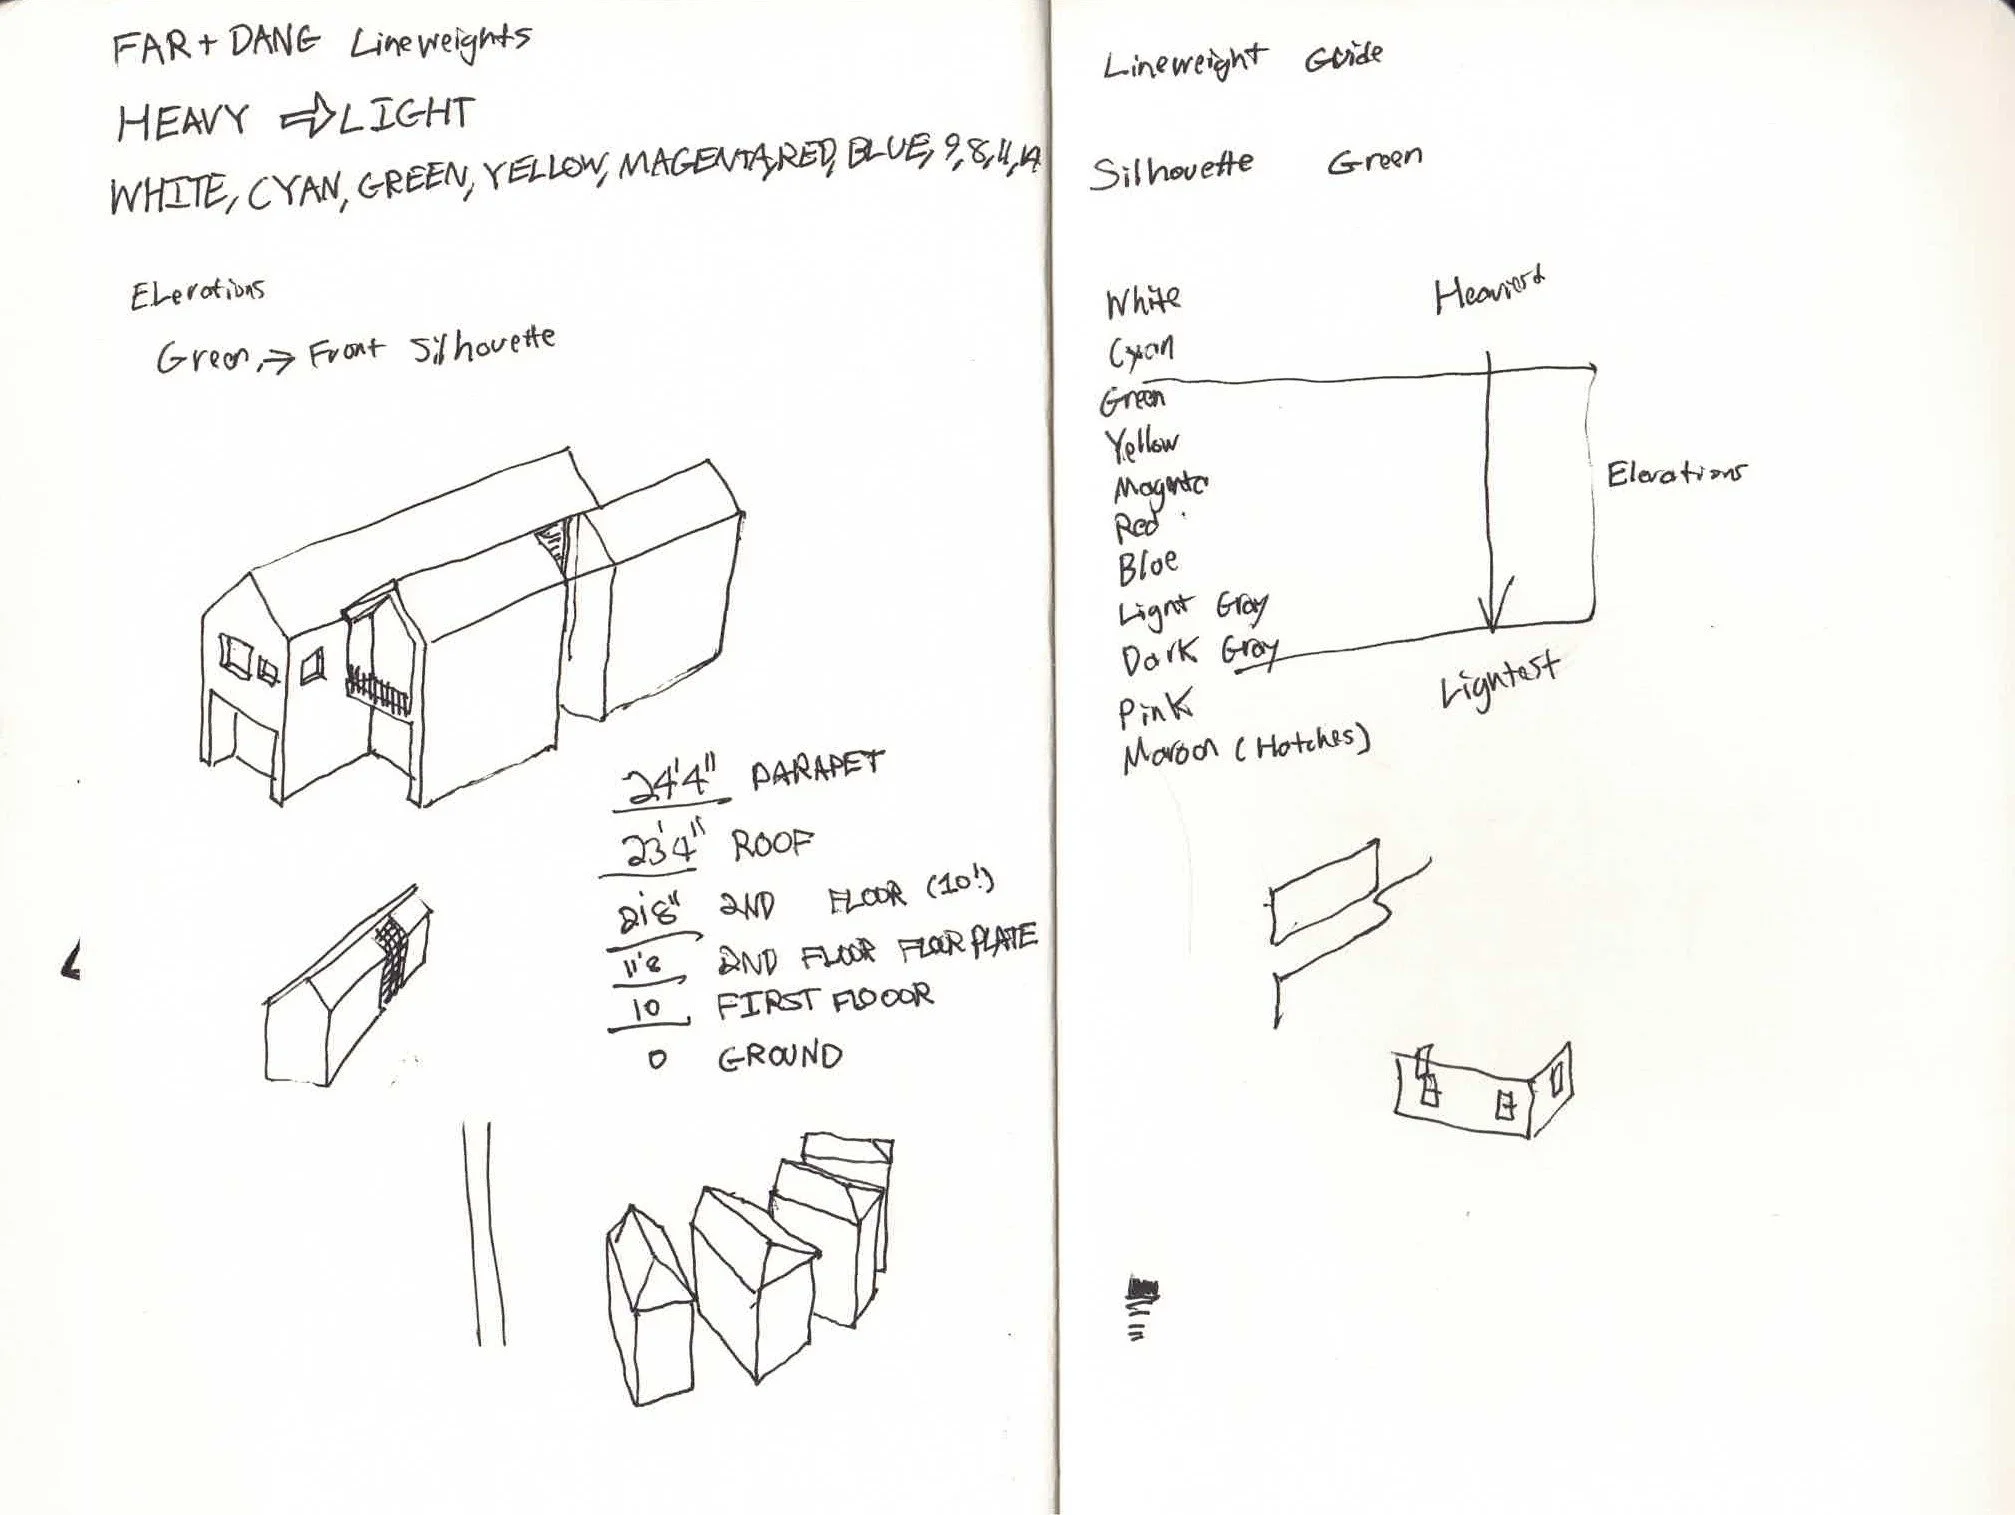 FAR + DANG Lineweights
HEAVY ⇒ LIGHT
WHITE, CYAN, GREEN, YELLOW, MAGENTA, RED, BLUE, 9, 8, 11, 14
Elevations
Green, → Front Silhouette
24'4" PARAPET
23'4" ROOF
21'8" 2ND FLOOR (10')
11'8 2ND FLOOR FLOOR PLATE
10 FIRST FLOOOR
0 GROUND
Lineweight Guide
Silhouette Green
White Heaviest
Cyan
Green
Yellow
Magenta
Elevations
Red
Blue
Light Gray
Dark Gray
Lightest
Pink
Maroon (Hatches)